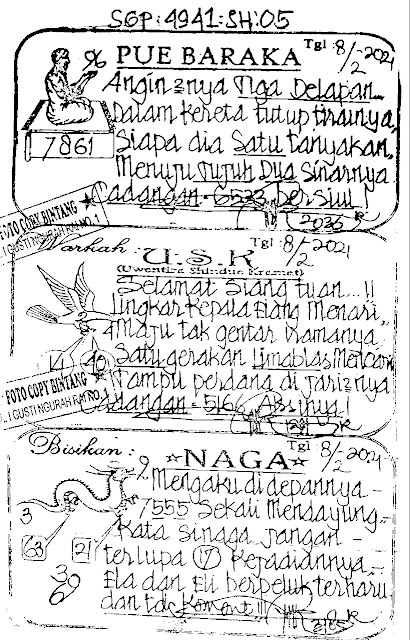 SGP:4941:SH:05
PUE BARAKA Tgl 8/2-2021
Angin2nya Tiga Delapan
Dalam Kereta Tutup tirainya,
7861
Siapa dia Satu tanyakan,
Menuju Tujuh Dua Sinarnya
Cadangan - 6533 bersiul!
2036
FOTO COPY BINTANG
I GUSTI NGURAH RAI NO. 1
Warkah: U.S.K Tgl 8/2-2021
Selamat Siang tuan....!!
Lingkar Kepala Elang Menari,
Maju tak gentar iramanya
Satu gerakan Limablas Mencari
Tampu perdana di Jari2nya
FOTO COPY BINTANG
I GUSTI NGURAH RAI NO.
Cadangan - 5166 Absinya!
Bisikan: NAGA Tgl 8/2-2021
Mengaku di depannya -
7555 Sekali Mendayung -
Kata Singga jangan -
3
63
21
terlupa 17 Kejadiannya -
Ela dan Eli berpeluk terharu
dan tak Koment!!!